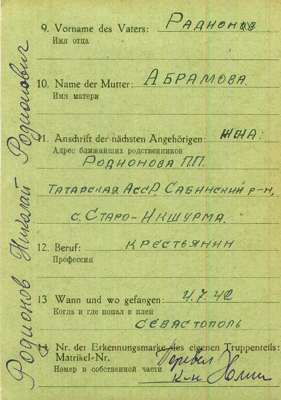 9. Vorname des Vaters: Радионов
Имя отца
10. Name der Mutter: Абрамова.
Имя матери
11. Anschrift der nächsten Angehörigen: жна:
Адрес ближайших родственников
Родионова П.П.
Татарская АссР Сабинский р-н,
с. Старо-Икшурма.
12. Beruf: крестьянин
Профессия
13 Wann und wo gefangen: 4.7.42
Когда и где попал в плен
Севастополь
14. Nr. der Erkennungsmarke des eigenen Truppenteils:
Matrikel-Nr.
Номер в собственной части
Перевел
Родионов Николай Родионович